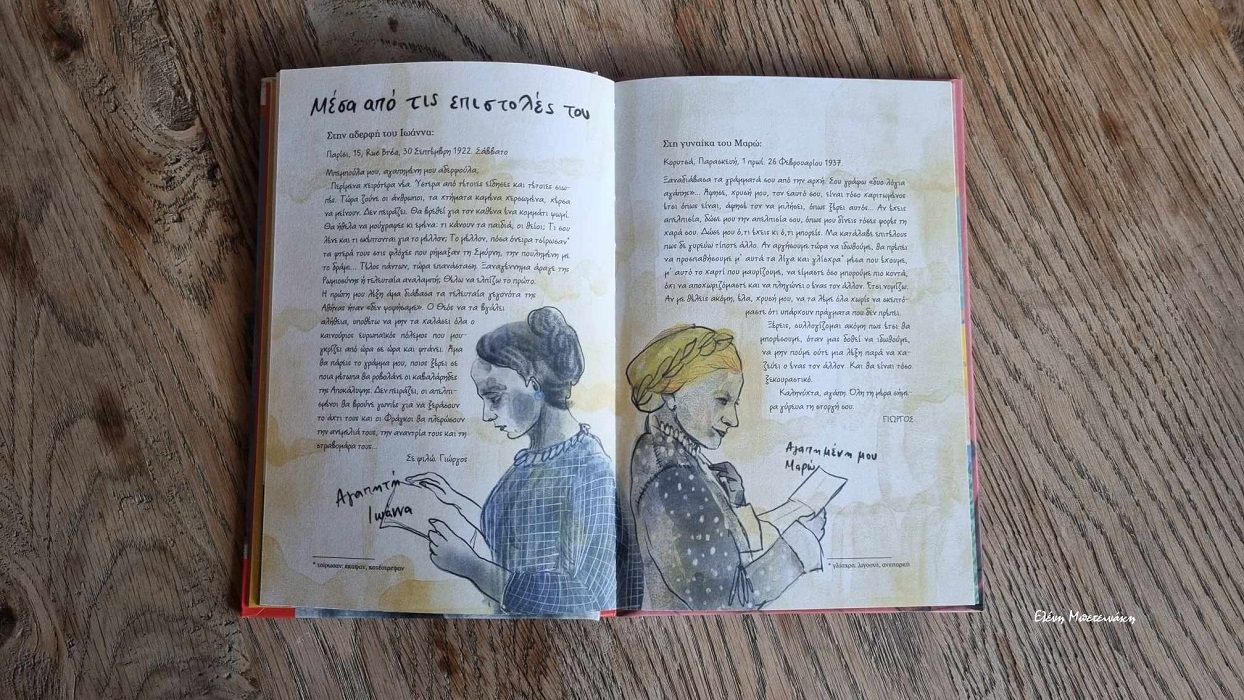 Μέσα από τις επιστολές του
Στην αδερφή του Ιωάννα:
Παρίσι, 15, Rue Bréa, 30 Σεπτέμβρη 1922. Σάββατο
Μπεμπούλα μου, αγαπημένη μου αδερφούλα,
Περίμενα χειρότερα νέα. Ύστερα από τέτοιες είδησες και τέτοιες σιω-
πές. Τώρα ζούνε οι άνθρωποι, τα χτήματα καμένα χερσωμένα, χέρσα
να μείνουν. Δεν πειράζει. Θα βρεθεί για τον καθένα ένα κομμάτι ψωμί.
Θα ήθελα να μούγραφες κι εμένα: τι κάνουν τα παιδιά, οι θείοι; Τι σου
λένε και τι σκέπτονται για το μέλλον; Το μέλλον, πόσα όνειρα τσίρωσαν*
τα φτερά τους στις φλόγες που ρήμαξαν τη Σμύρνη, την πουλημένη με
το δράμι... Τέλος πάντων, τώρα επανάσταση. Ξαναγέννημα άραγε της
Ρωμιοσύνης ή τελευταία αναλαμπή; Θέλω να ελπίζω το πρώτο.
Η πρώτη μου λέξη άμα διάβασα τα τελευταία γεγονότα της
Αθήνας ήταν «δεν ψοφήσαμε». Ο Θεός να τα βγάλει
αλήθεια, υποθέτω να μην τα χαλάσει όλα ο
καινούριος ευρωπαϊκός πόλεμος που μου-
γκρίζει από ώρα σε ώρα και φτάνει. Άμα
θα πάρεις το γράμμα μου, ποιος ξέρει σε
ποια μέτωπα θα ροβολάνε οι καβαλάρηδες
της Αποκάλυψης. Δεν πειράζει, οι απελπι-
σμένοι θα βρούνε γωνιές για να ξεράσουν
το άχτι τους και οι Φράγκοι θα πλερώσουν
την ανεμελιά τους, την αναντρία τους και τη
στραβομάρα τους...
Σε φιλώ, Γιώργος
Αγαπητή
Ιωάννα
* τσίρωσαν: έκαψαν, κατέστρεψαν
Στη γυναίκα του Μαρώ:
Κορυτσά, Παρασκευή, 1 πρωί. 26 Φεβρουαρίου 1937.
Ξαναδιάβασα τα γράμματά σου από την αρχή. Σου γράφω «δυο λόγια
αγάπης»... Άφησε, χρυσή μου, τον εαυτό σου, είναι τόσο χαριτωμένος
έτσι όπως είναι, άφησέ τον να μιλήσει, όπως ξέρει αυτός... Αν έχεις
απελπισία, δώσε μου την απελπισία σου, όπως μου δίνεις τόσες φορές τη
χαρά σου. Δώσε μου ό,τι έχεις κι ό,τι μπορείς. Μα κατάλαβε επιτέλους
πως δε γυρεύω τίποτε άλλο. Αν αρχίσουμε τώρα να ιδωθούμε, θα πρέπει
να προσπαθήσουμε μ' αυτά τα λίγα και γλίσχρα* μέσα που έχουμε,
μ' αυτό το χαρτί που μαυρίζουμε, να είμαστε όσο μπορούμε πιο κοντά,
όχι να αποχωριζόμαστε και να πληγώνει ο ένας τον άλλον. Έτσι νομίζω.
Αν με θέλεις ακόμη, έλα, χρυσή μου, να τα λέμε όλα χωρίς να σκεπτό-
μαστε ότι υπάρχουν πράγματα που δεν πρέπει.
Ξέρεις, συλλογίζομαι ακόμη πως έτσι θα
μπορέσουμε, όταν μας δοθεί να ιδωθούμε,
να μην πούμε ούτε μια λέξη παρά να κα-
ζεύει ο ένας τον άλλον. Και θα είναι τόσο
ξεκουραστικό.
Καληνύχτα, αγάπη. Όλη τη μέρα σήμε-
ρα γύρευα τη στοργή σου.
ΓΙΩΡΓΟΣ
Αγαπημένη μου
Μαρώ
* γλίσχρα: λιγοστά, ανεπαρκή
Ελένη Μπετεινάκη